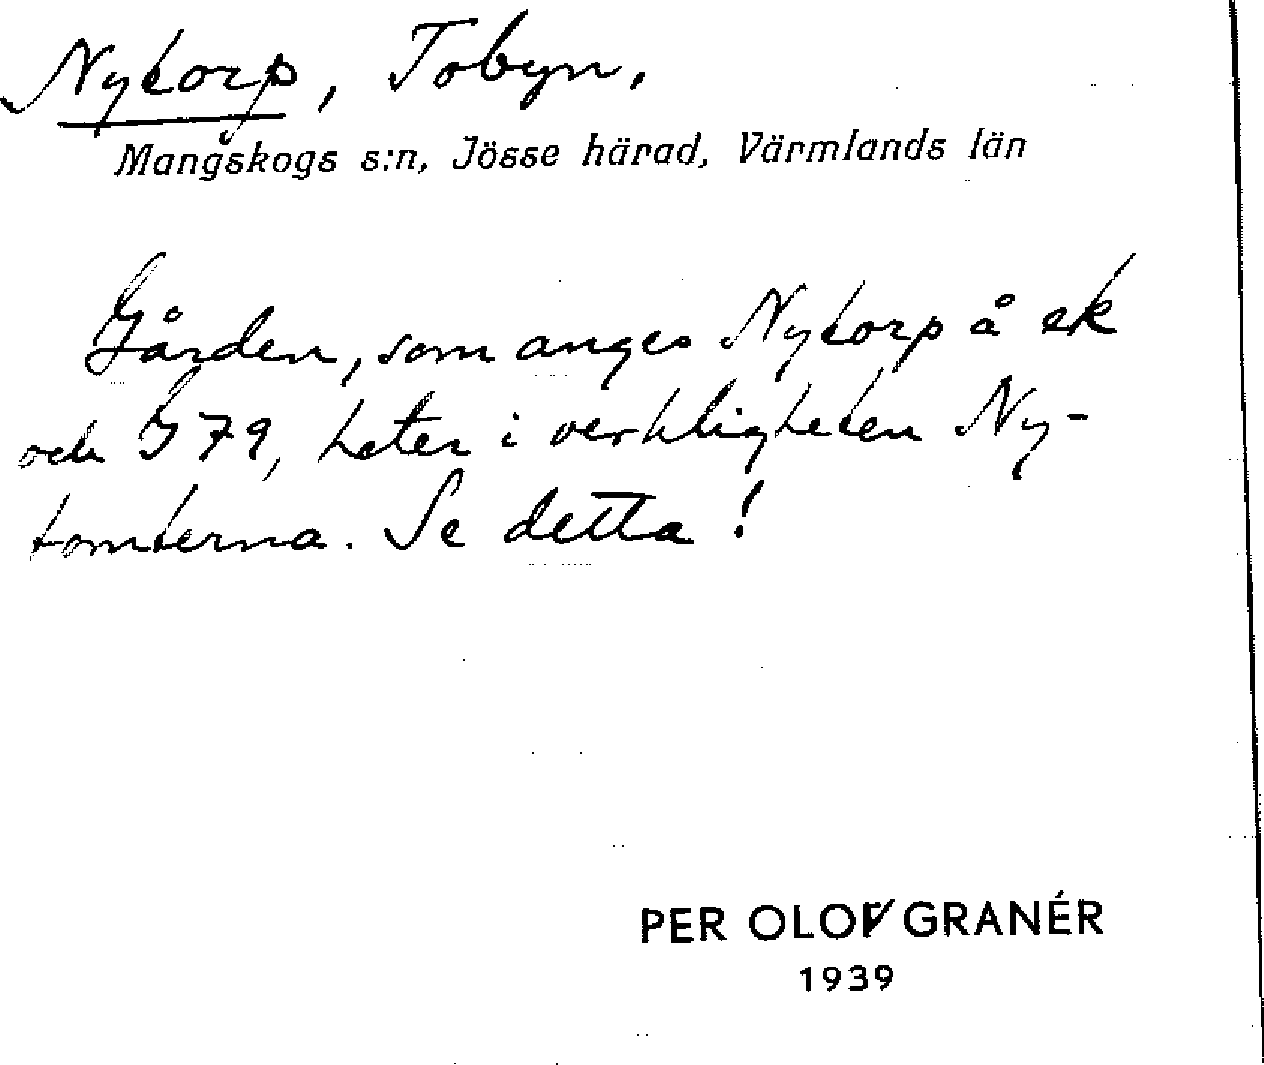 Nytorp, Tobyn,
Mangskogs s:n, Jösse härad, Värmlands län
Gården, som anges Nytorp å ek
och J 79, heter i verkligheten Ny-
tomterna. Se detta!
PER OLOV GRANÉR
1939